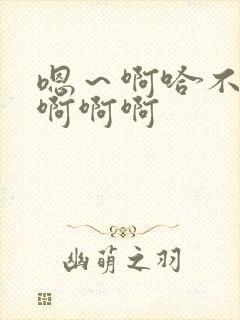 嗯～啊哈不
啊啊啊
幽萌之羽